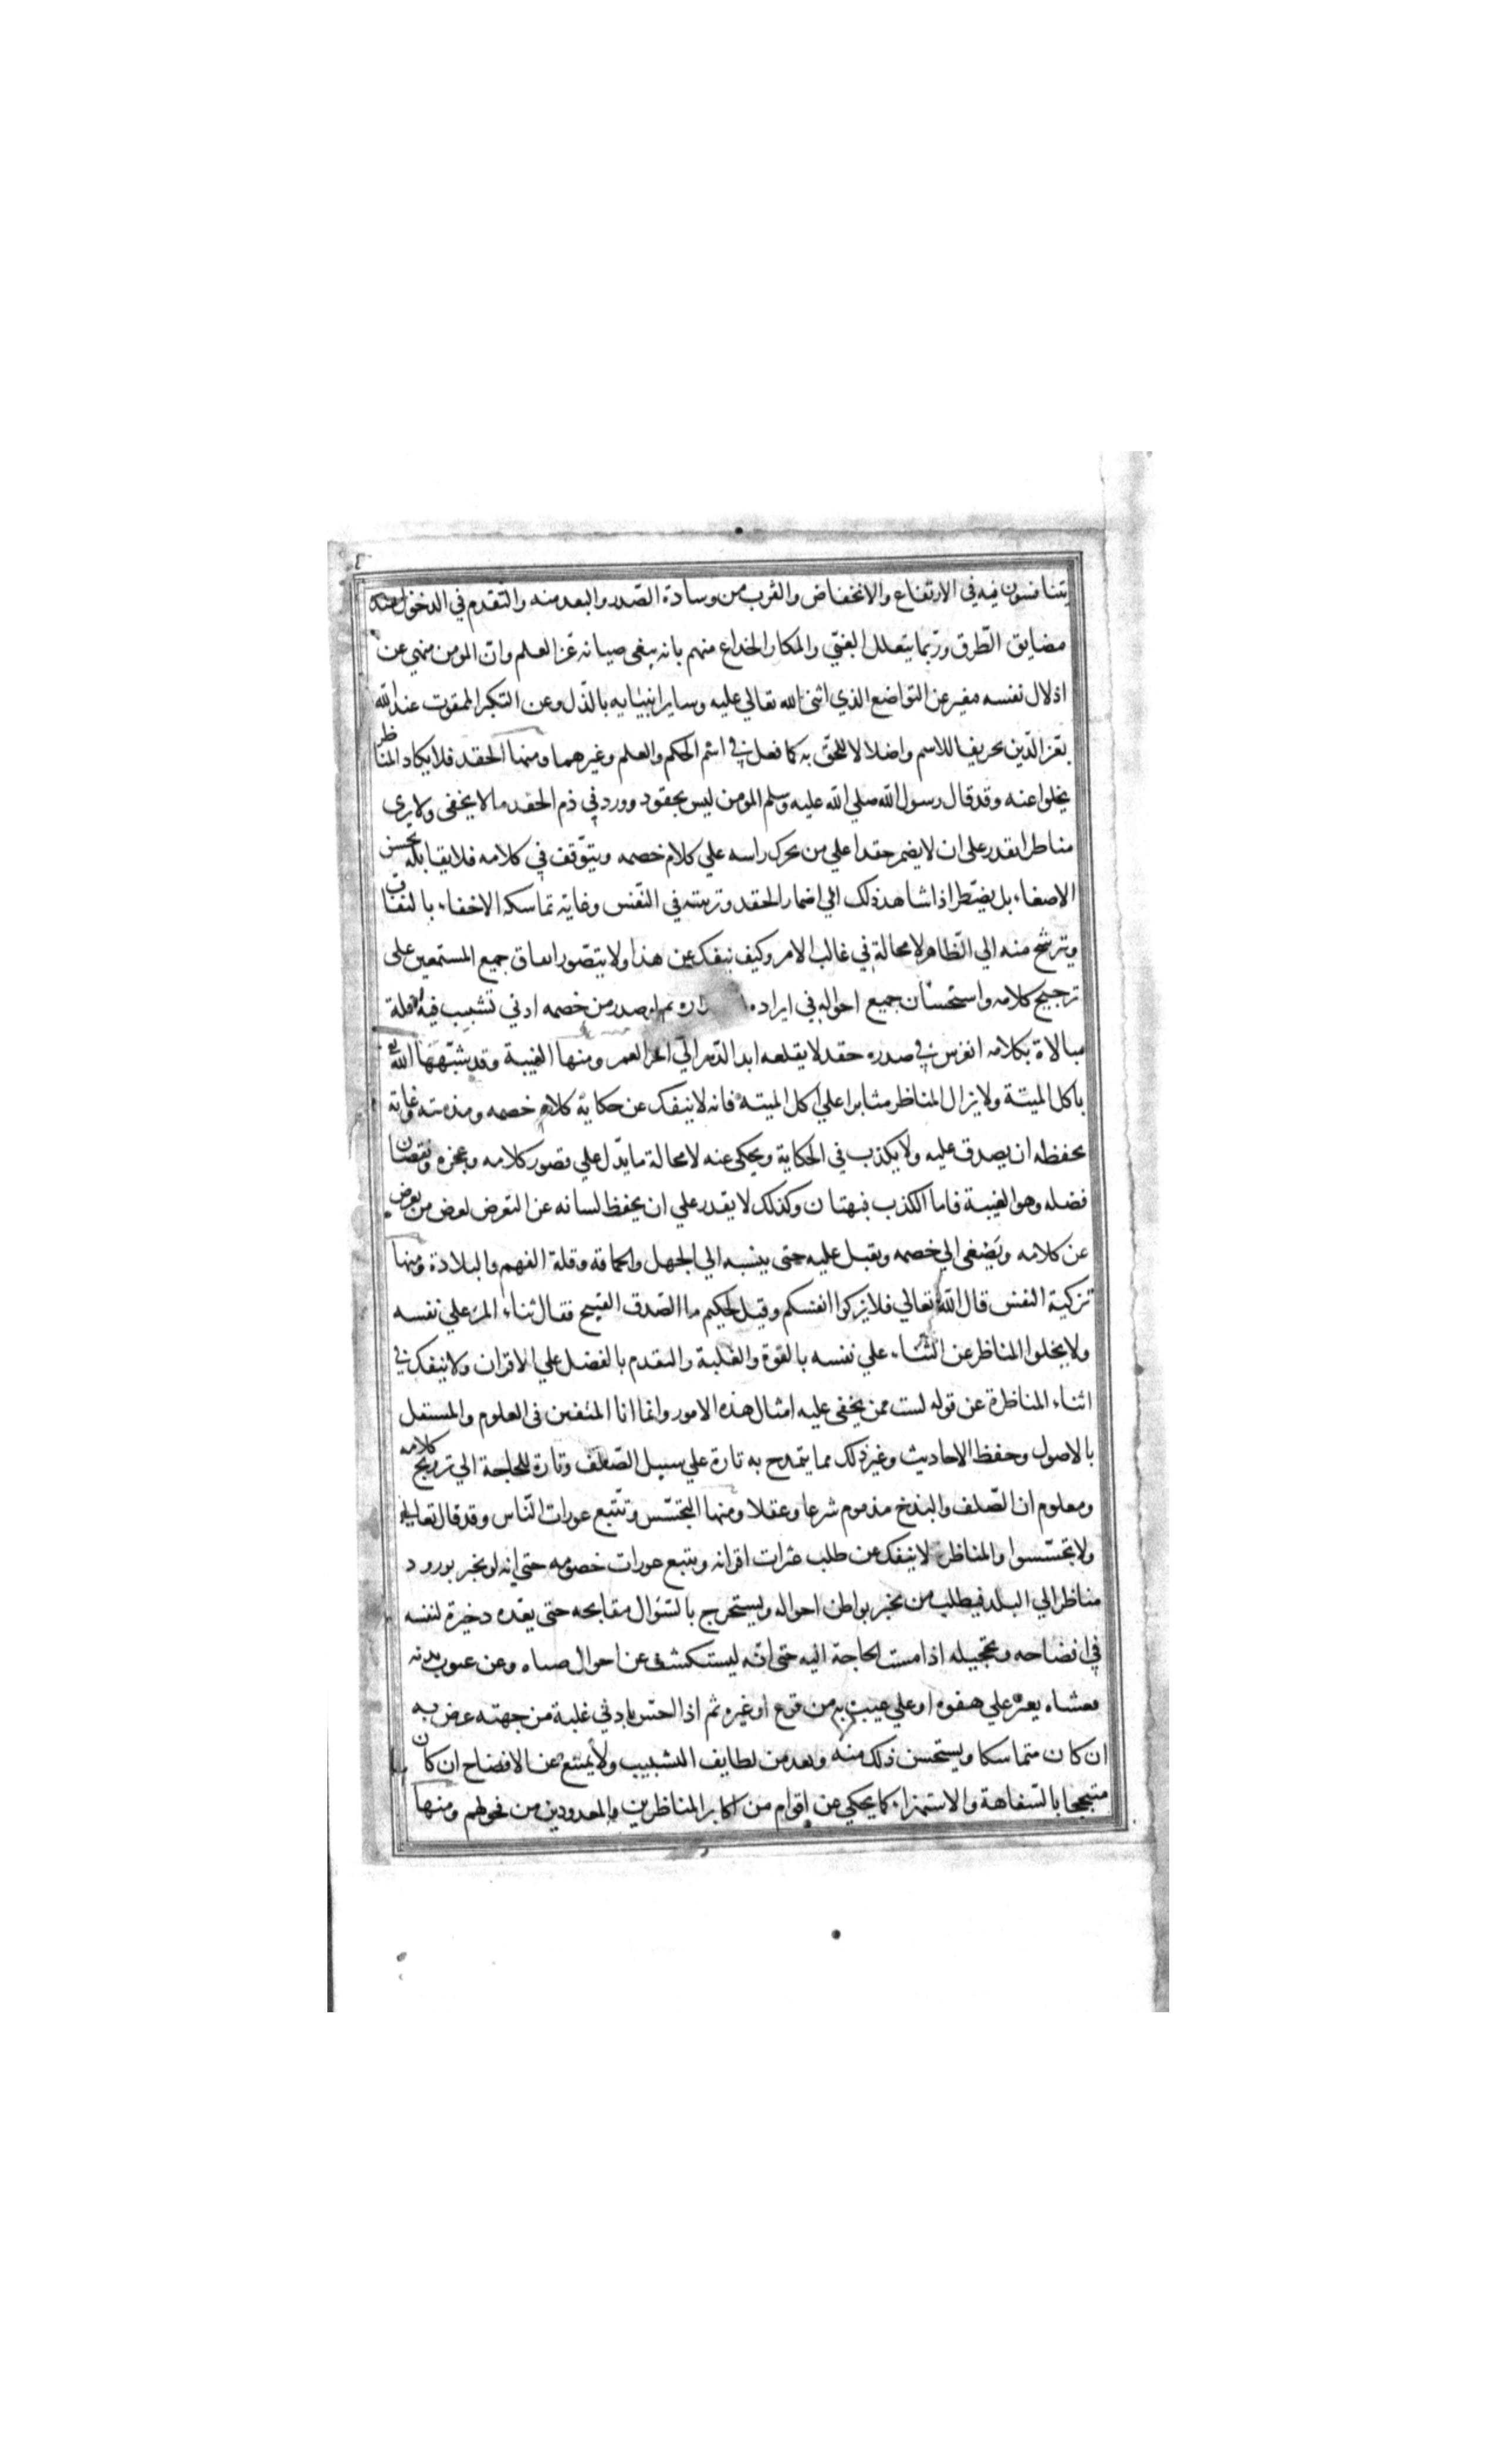 ٤
يتنافسون فيه في الارتفاع والانخفاض والقرب من وسادة الصّدر والبعد منه والتّقدم في الدخول عند
مضايق الطّرق وربّما يتعلل الغبيّ والمكار الخداع منهم بانه يبغى صيانة عز العلم وان المومن منهي عن
اذلال نفسه فيعبر عن التواضع الذي اثنى الله تعالي عليه وساير انبيايه بالذّل وعن التكبر الممقوت عند الله
بعز الدّين تحريفا للاسم واضلالا للخلق به كما فعل في اسم الحكم والعلم وغيرهما ومنها الحقد فلا يكاد المناظر
يخلوا عنه وقد قال رسول الله صلي الله عليه وسلم المومن ليس بحقود وورد في ذم الحقد ما لا يخفى ولا يرى
مناظرا يقدر على ان لا يضمر حقدا علي من يحرك راسه علي كلام خصمه ويتوّقف في كلامه فلا يقابله بحسن
الاصغاء بل يضّطر اذا شاهد ذلك الي اضمار الحقد وتربيته في النّفس وغاية تماسكه الاخفاء بالنفاق
وترشح منه الي الظّاهر لا محالة في غالب الامر وكيف ينفك عن هذا ولا يتصّور اتفاق جميع المستمعين على
ترجيح كلامه واستحسان جميع احواله في ايراده صدر من خصمه ادني تشبب فيه قلة
مبالاة بكلامه انغرس في صدره حقد لا يقلعه ابد الدّهر الي اخر العمر ومنها الغيبة وقد شبّهها الله
باكل الميتة ولا يزال المناظر مثابرا علي اكل الميتة فانه لا ينفك عن حكاية كلام خصمه ومذمته وغاية
تحفظه ان يصدق عليه ولا يكذب في الحكاية ويحكي عنه لا محالة ما يدّل علي قصور كلامه وعجزه ونقصان
فضله وهو الغيبة فاما الكذب فبهتان وكذلك لا يقدر علي ان يحفظ لسانه عن التعرض لعرض من يعرض
عن كلامه ويصغى الي خصمه ويقبل عليه حتى ينسبه الي الجهل والحماقة وقلة الفهم والبلادة ومنها
تزكية النفس قال الله تعالي فلا تزكوا انفسكم وقيل لحكيم ما الصّدق القبيح فقال ثناء المرء علي نفسه
ولا يخلوا المناظر عن الثناء علي نفسه بالقوة والغلبة والتقدم بالفضل علي الاقران ولا ينفك في
اثناء المناظرة عن قوله لست ممن يخفى عليه امثال هذه الامور وانما انا المتفنن في العلوم والمستقل
بالاصول وحفظ الاحاديث وغير ذلك مما يتمدح به تارة علي سبيل الصّلف وتارة للحاجة الي ترويج كلامه
ومعلوم ان الصّلف والبذخ مذموم شرعا وعقلا ومنها التجسّس وتتّبع عورات النّاس وقد قال تعالي
ولا تجسّسوا والمناظر لا ينفك عن طلب عثرات اقرانه وتتبع عورات خصومه حتى انه لو يخبر بورود
مناظر الي البلد فيطلب من يخبر بواطن احواله ويستخرج بالسّئوال مقابحه حتى يعّده ذخيرة لنفسه
في افضاحه وتخجيله اذا مست الحاجة اليه حتى انّه ليستكشف عن احوال صباه وعن عيوب بدنه
فعساه يعثر علي هفوة او علي عيب به من قرع او غيره ثم اذا احسّ بادني غلبة من جهته عرض به
ان كان متماسكا ويستحسن ذلك منه ويعد من لطايف التشبيب ولا يمتنع عن الافضاح ان كان
متبجحا بالسّفاهة والاستهزاء كما يحكي عن اقوام من اكابر المناظرين والمعدودين من فحولهم ومنها